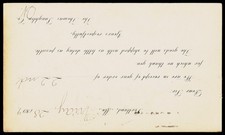 Portland, Me.
Dear Sir:
We are in receipt of your order of 22 inst
for which we thank you.
The goods will be shipped with as little delay as possible.
Yours respectfully,
The Thomas Laughlin Co.